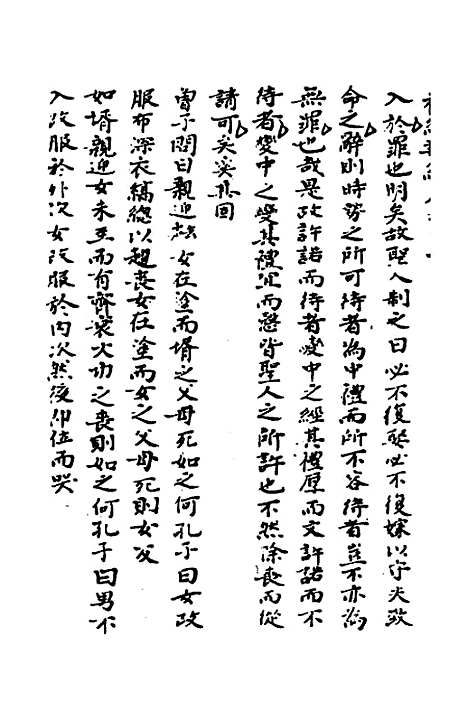 入於罪也明矣故聖人制之曰必不復娶必不復嫁以守夫致
命之辭則時勢之所可待者為中禮而所不容待者豈不亦為
無罪也哉是故許諾而待者變中之經其禮厚而文許諾而不
待者變中之變其禮而愨皆聖人之所許也不然除喪而從
請可矣奚其回
曾子問曰親迎女在塗而壻之父母死如之何孔子曰女改
服布深衣縞總以趨喪女在塗而女之父母死則女反
如壻親迎女未至而有齊衰大功之喪則如之何孔子曰男不
入改服於外次女改服於内次然後即位而哭